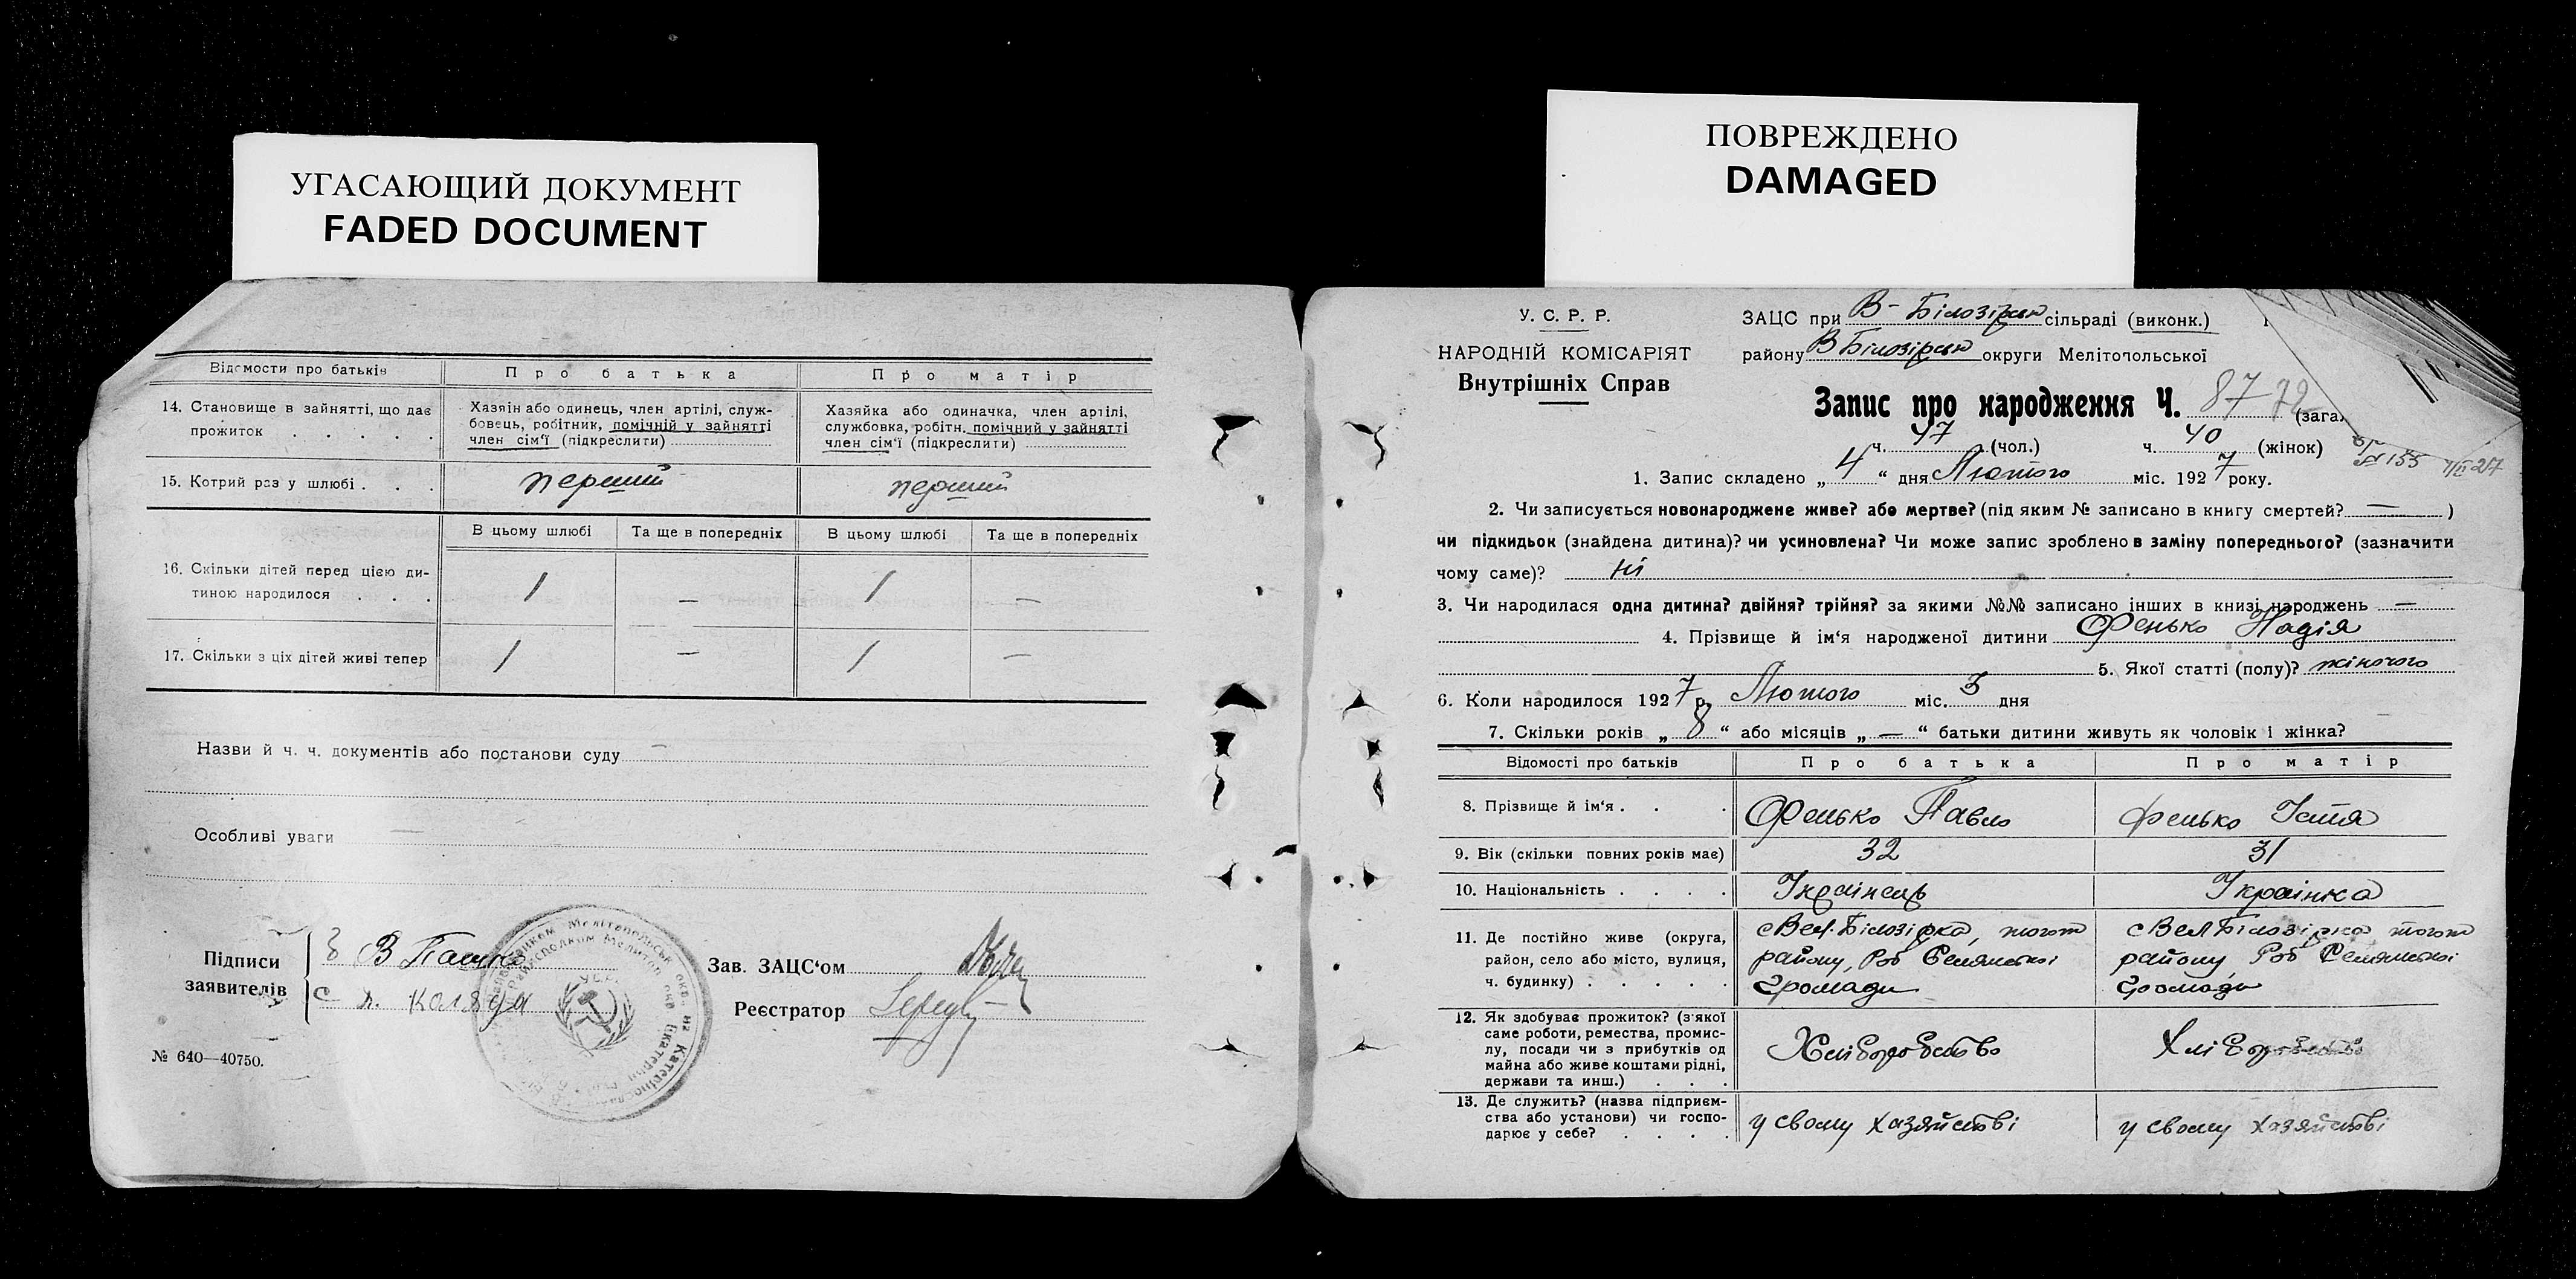 УГАСАЮЩИЙ ДОКУМЕНТ
FADED DOCUMENT
Відомости про батьків
Про батька
Про матір
14. Становище в зайнятті, що дає
прожиток . . . . .
Хазяін або одинець, член артілі, служ-
бовець, робітник, помічній у зайнятті
член сім'ї (підкреслити)
Хазяйка або одиначка, член артілі,
службовка, робітн. помічний у зайнятті
член сім'ї (підкреслити)
15. Котрий раз у шлюбі . . .
перший
перший
В цьому шлюбі
Та ще в попередніх
В цьому шлюбі
Та ще в попередніх
16. Скільки дітей перед цією ди-
тиною народилося . . .
1
—
1
—
17. Скільки з ціх дітей живі тепер
1
—
1
—
Назви й ч. ч. документів або постанови суду —
Особливі уваги —
Підписи
заявителів
Зав. ЗАЦС'ом
Реєстратор
№ 640—40750.
ПОВРЕЖДЕНО
DAMAGED
У. С. Р. Р.
НАРОДНІЙ КОМІСАРІЯТ
Внутрішніх Справ
ЗАЦС при В-Білозірськ сільраді (виконк.)
району В Білозірськ округи Мелітопольської
Запис про народження Ч. 87 72 (зага
ч. 47 (чол.) ч. 40 (жінок)
№ 155
1. Запис складено „ 4 “ дня Лютого міс. 1927 року.
2. Чи записується новонароджене живе? або мертве? (під яким № записано в книгу смертей? — )
чи підкидьок (знайдена дитина)? чи усиновлена? Чи може запис зроблено в заміну попереднього? (зазначити
чому саме)? ні
3. Чи народилася одна дитина? двійня? трійня? за якими №№ записано інших в книзі народжень —
4. Прізвище й ім'я народженої дитини Фенько Надія
5. Якої статті (полу)? жіночого
6. Коли народилося 1927 р. Лютого міс. 3 дня
7. Скільки років „ 8 “ або місяців „ — “ батьки дитини живуть як чоловік і жінка?
Відомості про батьків
Про батька
Про матір
8. Прізвище й ім'я . . .
Фенько Павло
Фенько Устя
9. Вік (скільки повних років має)
32
31
10. Національність . . . .
Українець
Українка
11. Де постійно живе (округа,
район, село або місто, вулиця,
ч. будинку) . . . . .
с Вел. Білозірка, тогож
району, Роб Селянської
Громади
с Вел Білозірка тогож
району Роб Селянської
Громади
12. Як здобуває прожиток? (з якої
саме роботи, ремества, промис-
лу, посади чи з прибутків од
майна або живе коштами рідні,
держави та инш.) . . .
Хліборобство
Хліборобство
13. Де служить? (назва підприєм-
ства або установи) чи госпо-
дарює у себе? . . . .
у свому хазяйстві
у свому хазяйстві